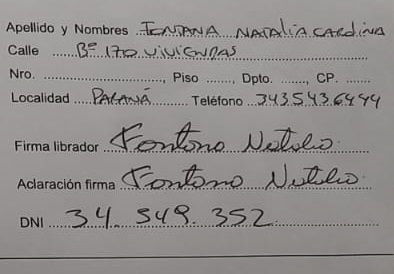 Apellido y Nombres FONTANA NATALIA CAROLINA
Calle Bº 170 VIVIENDAS
Nro. , Piso , Dpto. , CP.
Localidad PARANÁ Teléfono 3435436494
Firma librador Fontana Natalia
Aclaración firma Fontana Natalia
DNI 34.549.352